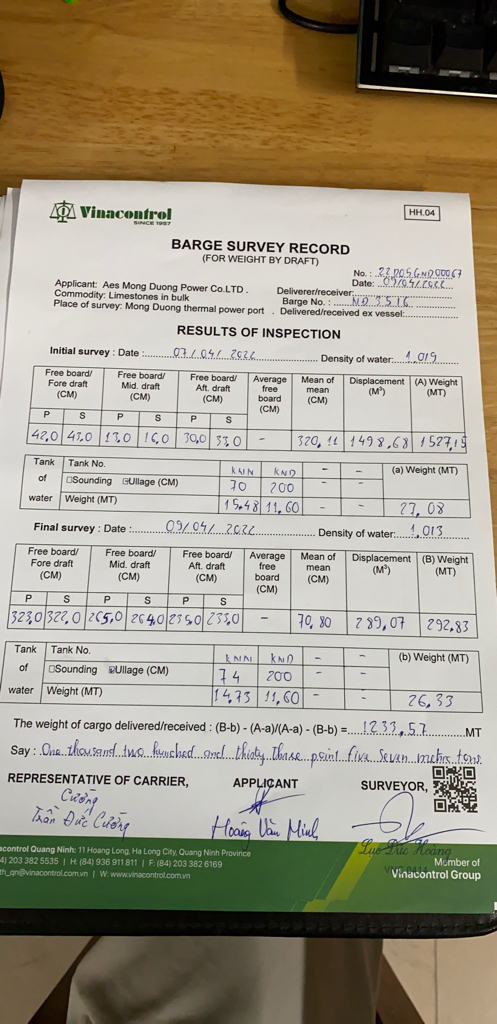 Vinacontrol
SINCE 1957
HH.04
BARGE SURVEY RECORD
(FOR WEIGHT BY DRAFT)
No. : 22D05GND00067
Applicant: Aes Mong Duong Power Co.LTD . Deliverer/receiver: Date: 09/04/2022
Commodity: Limestones in bulk Barge No. : NĐ 3516
Place of survey: Mong Duong thermal power port . Delivered/received ex vessel:
RESULTS OF INSPECTION
Initial survey : Date : 07/04/2022 Density of water: 1,019
Free board/ Fore draft (CM) Free board/ Mid. draft (CM) Free board/ Aft. draft (CM) Average free board (CM) Mean of mean (CM) Displacement (M³) (A) Weight (MT)
P S P S P S
42,0 43,0 13,0 16,0 30,0 33,0 - 320,11 1498,68 1527,15
Tank of water Tank No. KNN KND - - (a) Weight (MT)
□Sounding ☑Ullage (CM) 70 200 - -
Weight (MT) 15,48 11,60 - - 27,08
Final survey : Date : 09/04/2022 Density of water: 1,013
Free board/ Fore draft (CM) Free board/ Mid. draft (CM) Free board/ Aft. draft (CM) Average free board (CM) Mean of mean (CM) Displacement (M³) (B) Weight (MT)
P S P S P S
323,0 322,0 265,0 264,0 235,0 233,0 - 70,80 289,07 292,83
Tank of water Tank No. KNN KND - - (b) Weight (MT)
□Sounding ☑Ullage (CM) 74 200 - -
Weight (MT) 14,73 11,60 - - 26,33
The weight of cargo delivered/received : (B-b) - (A-a)/(A-a) - (B-b) = 1233,57 MT
Say : One thousand two hundred and thirty three point five seven metric tons
REPRESENTATIVE OF CARRIER, APPLICANT SURVEYOR,
Cường
Trần Đức Cường Hoàng Văn Minh Lưu Đức Hoàng
acontrol Quang Ninh: 11 Hoang Long, Ha Long City, Quang Ninh Province
4) 203 382 5535 | H: (84) 936 911 811 | F: (84) 203 382 6169
th_qn@vinacontrol.com.vn | W: www.vinacontrol.com.vn
Member of
Vinacontrol Group